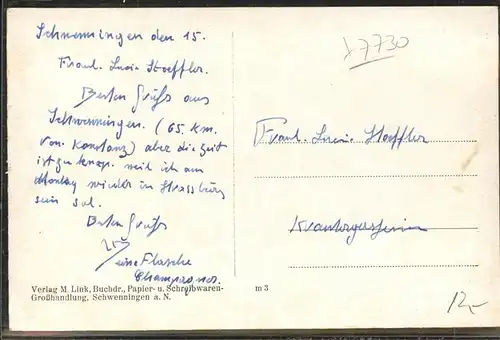 Schwenningen den 15.
Fraul. Lucie Stoeffler.
Besten Grüß aus
Schwenningen. (65. km.
von Konstanz) aber die zeit
ist zu knap. weil ich am
Montag wieder in Strassburg
sein sol.
Besten Grüß
eine Flasche
Verlag M. Link, Buchdr., Papier- u. Schreibwaren-
Großhandlung, Schwenningen a. N.
m 3
17730
Fraul. Lucie Stoeffler
Krautergersheim
12,-